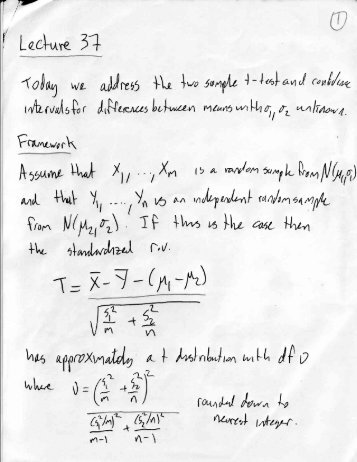 ①
Lecture 37
Today we address the two sample t-test and confidence
intervals for differences between means with σ₁, σ₂ unknown.
Framework
Assume that X₁, ..., Xm is a random sample from N(μ₁,σ₁)
and that Y₁, ..., Yn is an independent random sample
from N(μ₂,σ₂). If this is the case then
the standardized r.v.
T = (X̄ - Ȳ - (μ₁-μ₂)) / √(s₁²/m + s₂²/n)
has approximately a t distribution with df ν
where ν = (s₁²/m + s₂²/n)² / ((s₁²/m)²/(m-1) + (s₂²/n)²/(n-1))
rounded down to
nearest integer.